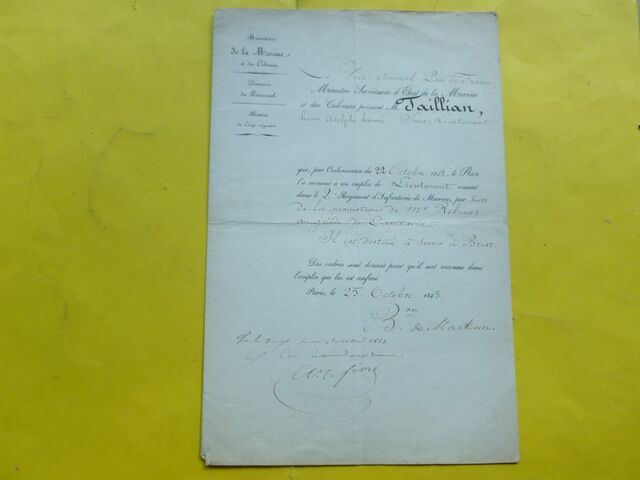 Ministère
de la Marine
et des Colonies
Direction
du Personnel
Bureau
des Corps organisés
Le Vice-Amiral, Pair de France,
Ministre Secrétaire d'Etat de la Marine
et des Colonies prévient Mr. Taillian,
Adolphe Sous-Lieutenant
que, par Ordonnance du 22 Octobre 1843, le Roi
l'a nommé à un emploi de Lieutenant vacant
dans le 2e Régiment d'Infanterie de Marine, par suite
de la promotion de Mr.
au grade de Capitaine.
Il est destiné à servir à Brest
Des ordres sont donnés pour qu'il soit reconnu dans
l'emploi qui lui est conféré.
Paris, le 25 Octobre 1843.
Bon de Mackau